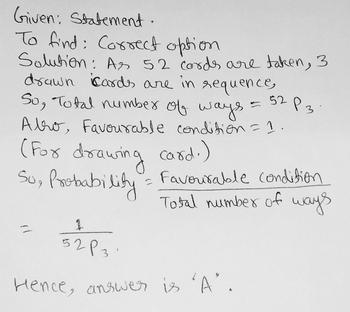 Given: Statement.
To find: Correct option
Solution: As 52 cards are taken, 3
drawn cards are in sequence,
So, Total number of ways = 52 P3.
Also, Favourable condition = 1.
(For drawing card.)
So, Probability = Favourable condition / Total number of ways
= 1 / 52P3.
Hence, answer is 'A'.